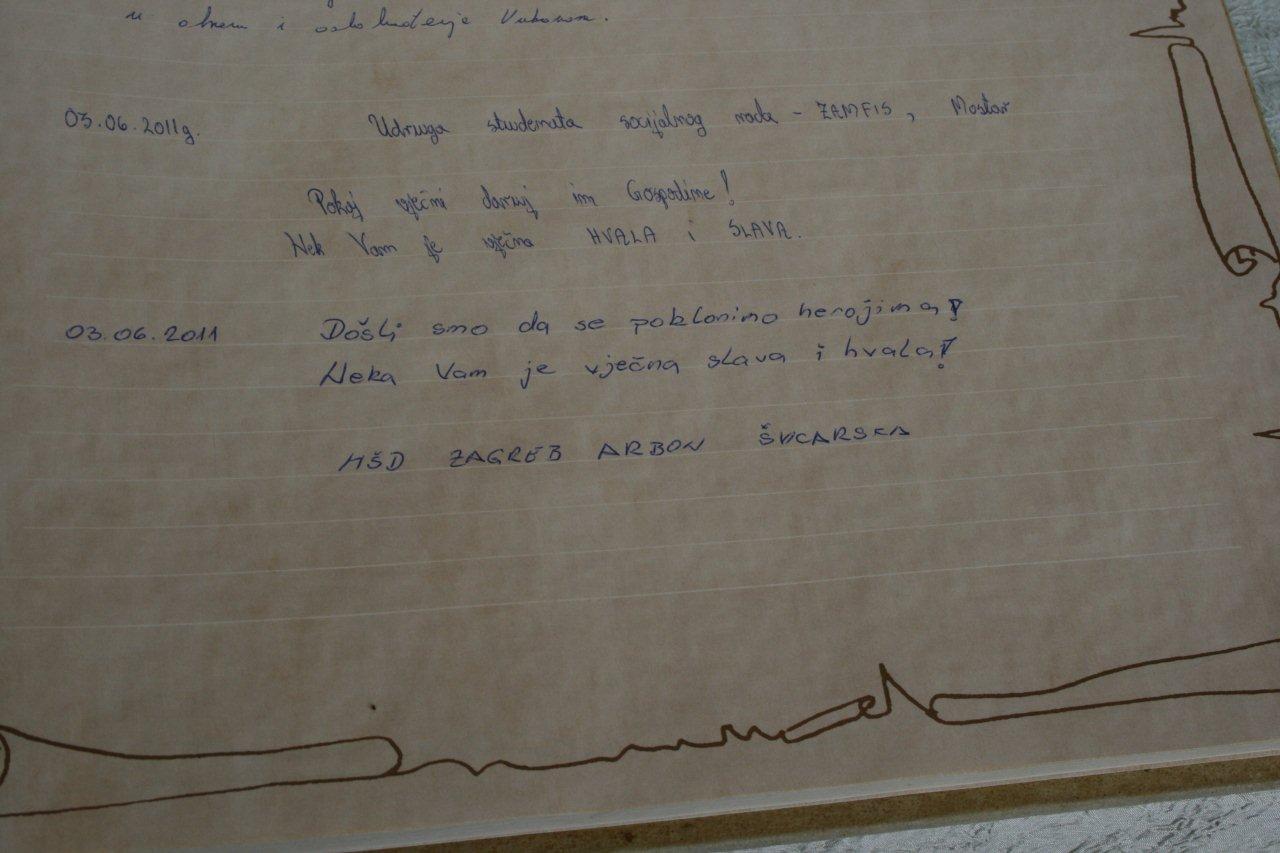 u obranu i oslobođenje Vukovara.
03.06.2011g. Udruga studenata socijalnog rada - ZAMFIS, Mostar
Pokoj vječni daruj im Gospodine!
Nek Vam je vječna HVALA i SLAVA.
03.06.2011 Došli smo da se poklonimo herojima!
Neka Vam je vječna slava i hvala!
HŠD ZAGREB ARBON ŠVICARSKA